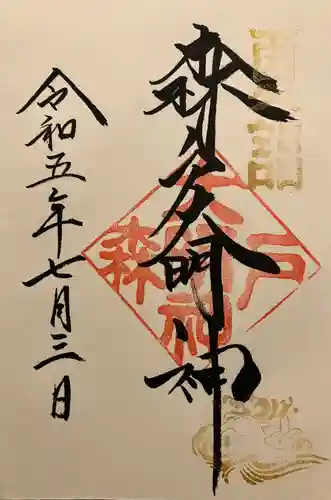 森戸大明神
令和五年七月三日
森戸
大明神